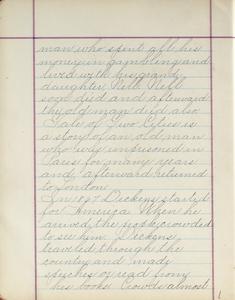 man who spent all his
money in gambling and
lived with his grand
daughter Nell. Nell
soon died and afterward
the old man died also
Tale of Two Cities is
a story of an old man
who was imprisoned in
Paris for many years
and afterward returned
to London
In 1867 Dickens started
for America. When he
arrived the people crowded
to see him. Dickens
traveled through the
country and made
speeches or read from
his books. Crowds almost